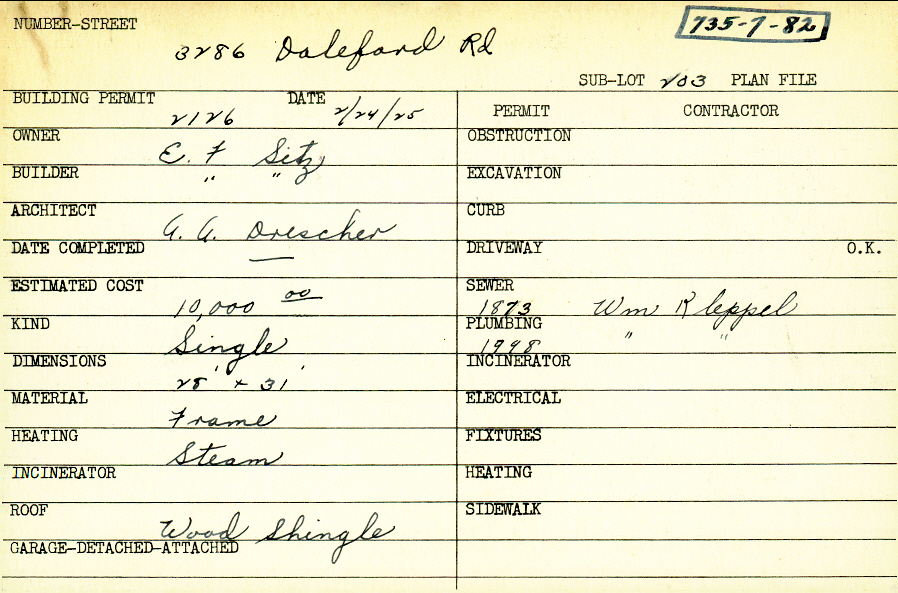 NUMBER-STREET
3286 Daleford Rd
735-7-82
SUB-LOT 203 PLAN FILE
BUILDING PERMIT 2126 DATE 2/24/25
PERMIT CONTRACTOR
OWNER E. F. Sitz
OBSTRUCTION
BUILDER " "
EXCAVATION
ARCHITECT A. A. Drescher
CURB
DATE COMPLETED —
DRIVEWAY O.K.
ESTIMATED COST 10,000 00
SEWER 1873 Wm Kleppel
KIND Single
PLUMBING 1998 " "
DIMENSIONS 28' x 31'
INCINERATOR
MATERIAL Frame
ELECTRICAL
HEATING Steam
FIXTURES
INCINERATOR
HEATING
ROOF Wood Shingle
SIDEWALK
GARAGE-DETACHED-ATTACHED